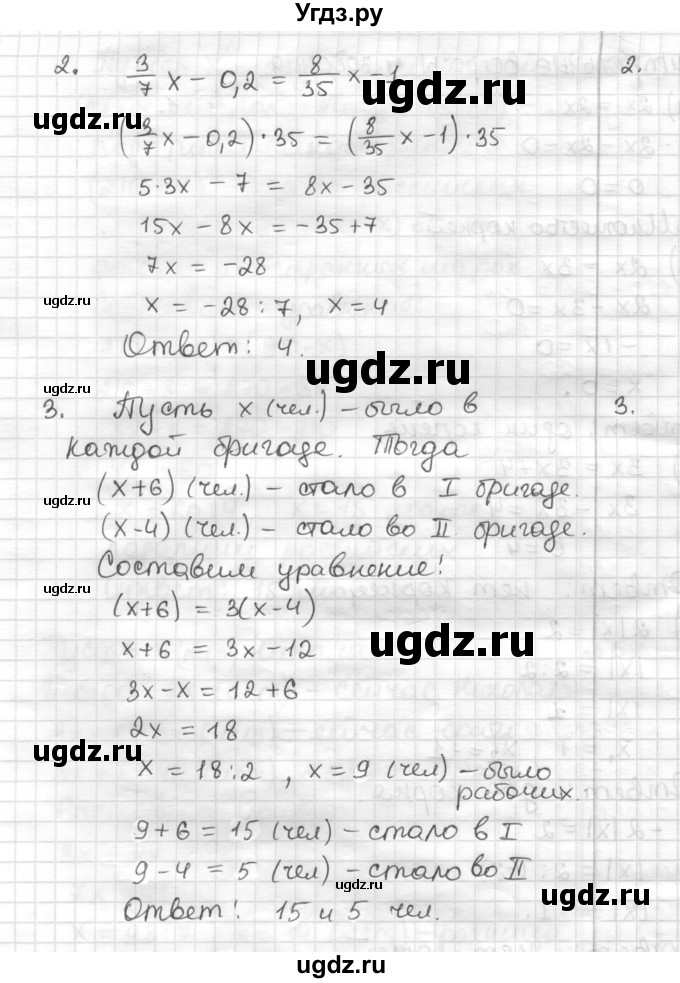 Угдз.ру
2. 3/7 x - 0,2 = 8/35 x - 1 2.
(3/7 x - 0,2) · 35 = (8/35 x - 1) · 35
5·3x - 7 = 8x - 35
15x - 8x = -35 + 7
7x = -28
x = -28 : 7, x = 4
Ответ: 4.
3. Пусть x (чел.) - было в 3.
каждой бригаде. Тогда
(x+6) (чел.) - стало в I бригаде.
(x-4) (чел.) - стало во II бригаде.
Составим уравнение!
(x+6) = 3(x-4)
x+6 = 3x-12
3x-x = 12+6
2x = 18
x = 18:2 , x = 9 (чел) - было
рабочих.
9+6 = 15 (чел) - стало в I
9-4 = 5 (чел) - стало во II
Ответ! 15 и 5 чел.
ugdz.ru
ugdz.ru
ugdz.ru
ugdz.ru
ugdz.ru
ugdz.ru
ugdz.ru
ugdz.ru
ugdz.ru
ugdz.ru
ugdz.ru
ugdz.ru